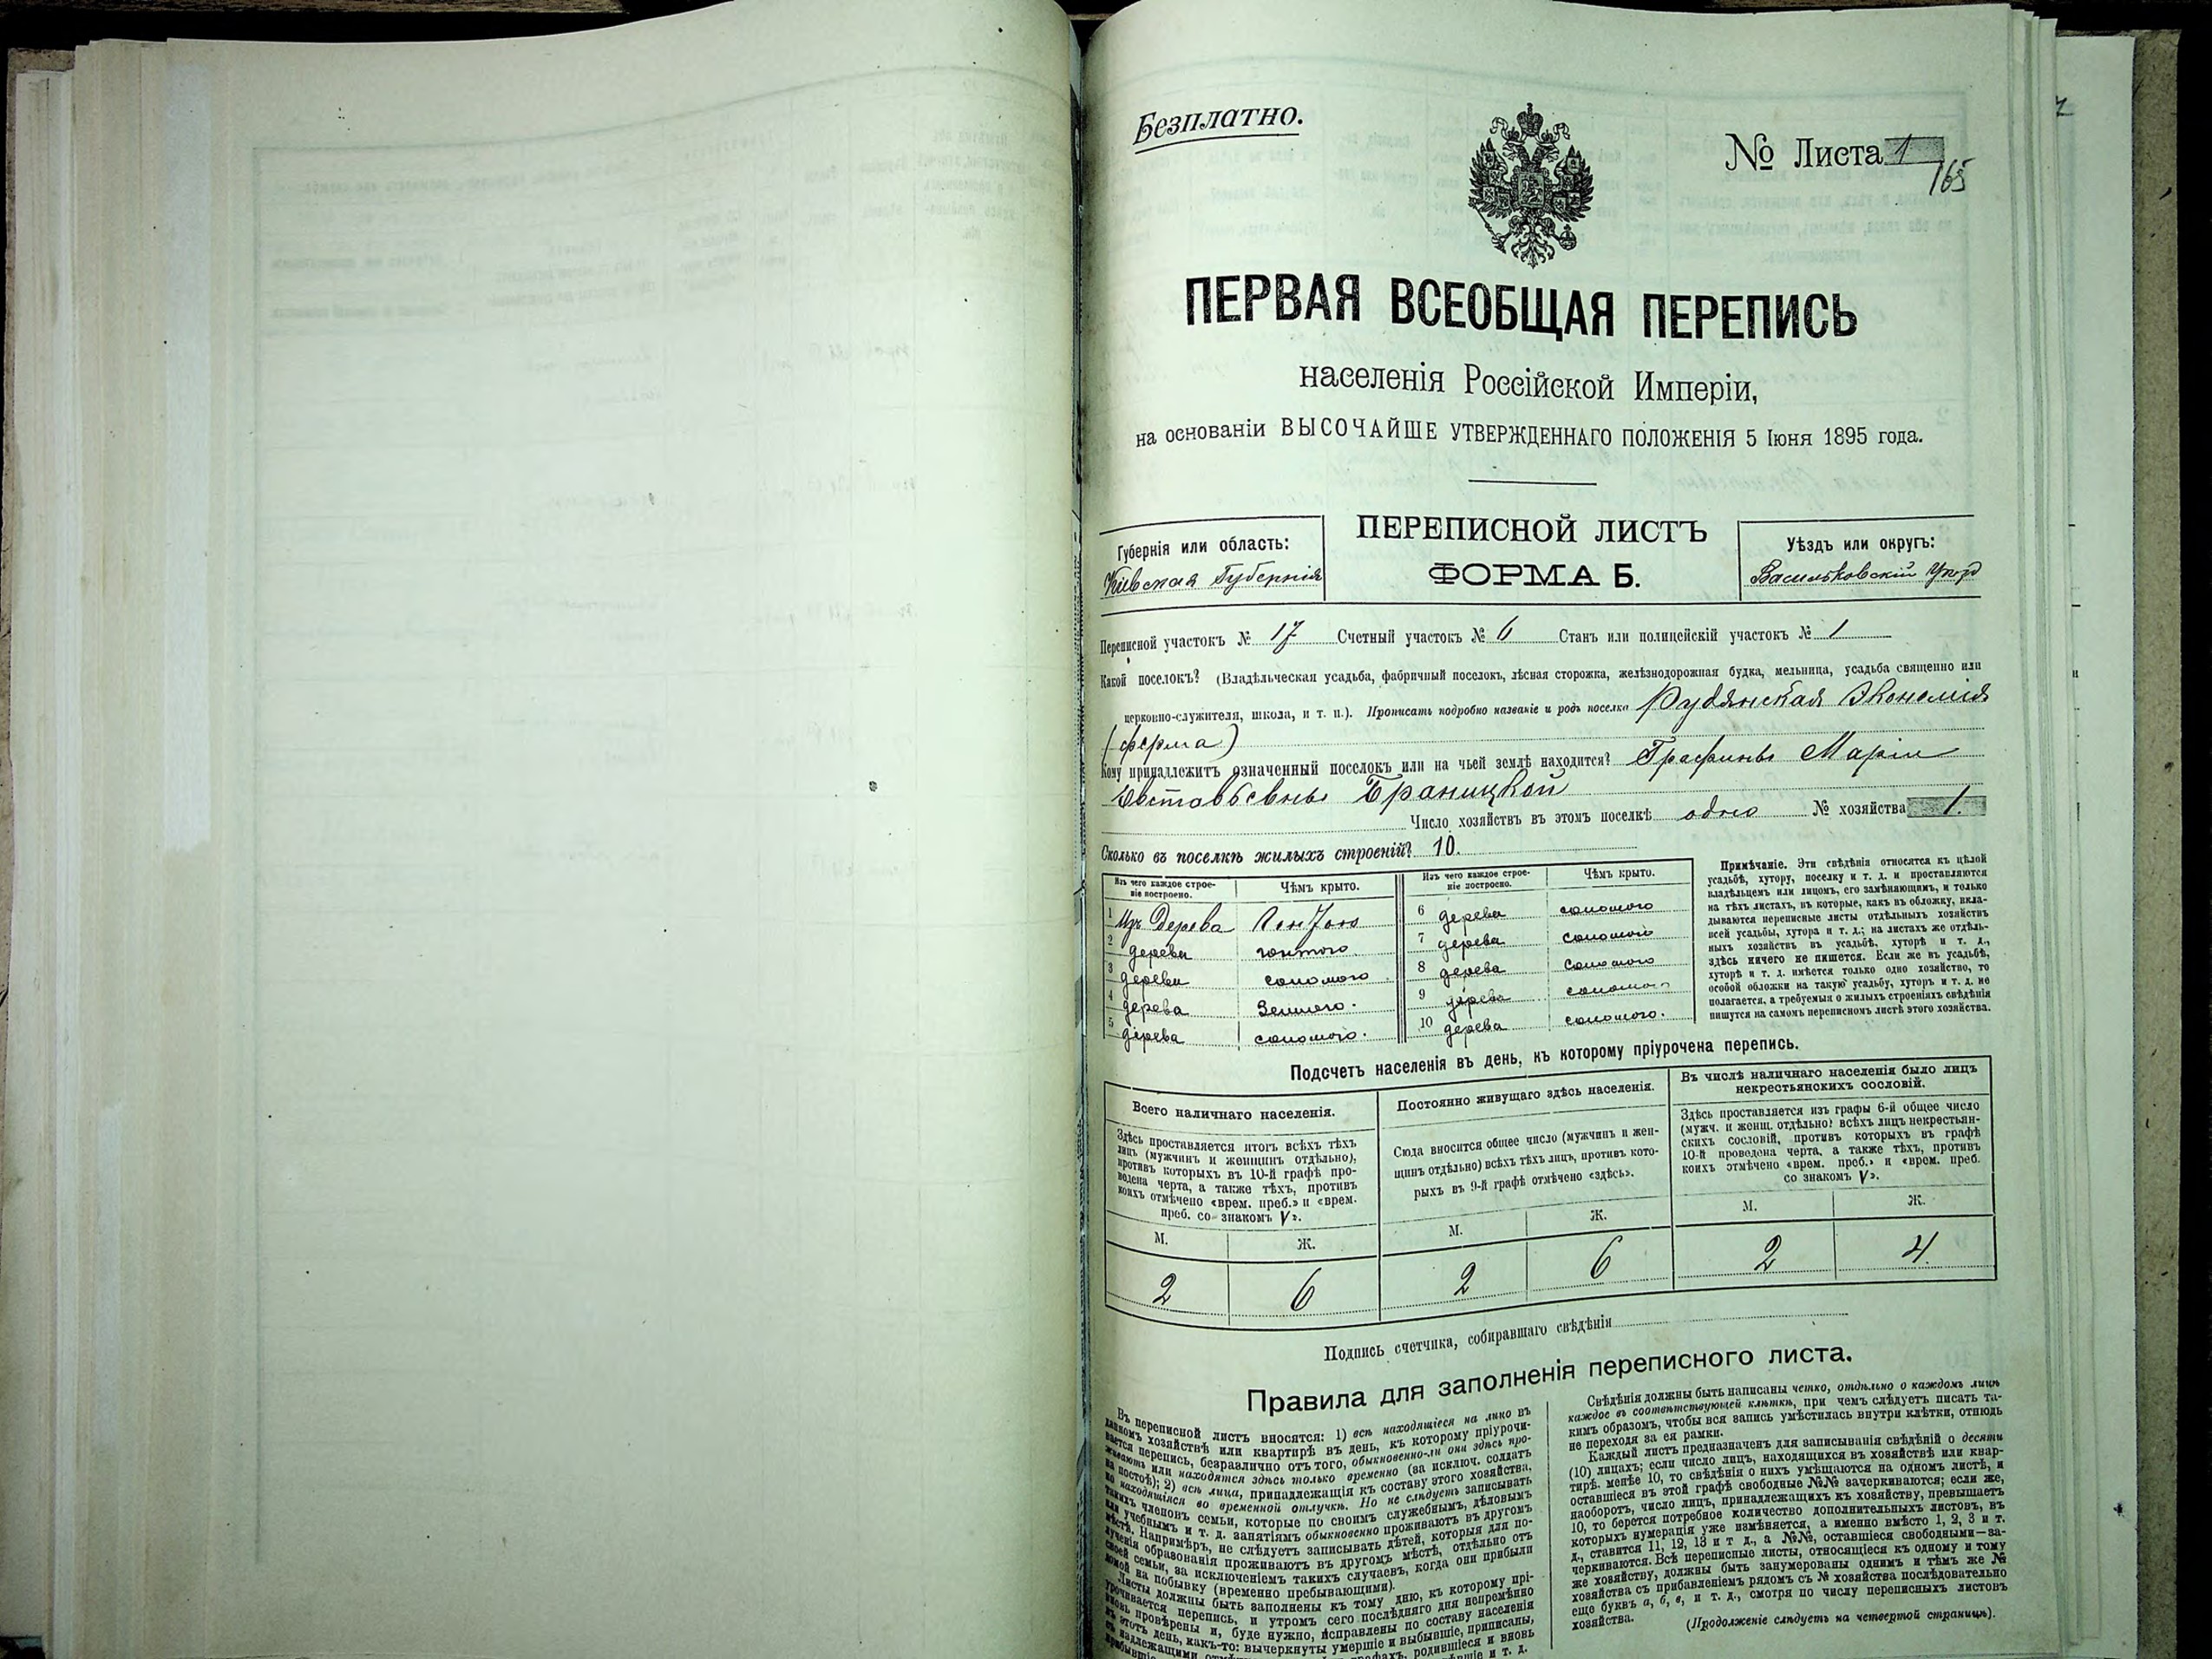 Безплатно.
№ Листа 1
165
ПЕРВАЯ ВСЕОБЩАЯ ПЕРЕПИСЬ
населенія Россійской Имперіи,
на основаніи ВЫСОЧАЙШЕ УТВЕРЖДЕННАГО ПОЛОЖЕНІЯ 5 Іюня 1895 года.
Губернія или область:
Кіевская Губернія
ПЕРЕПИСНОЙ ЛИСТЪ
ФОРМА Б.
Уѣздъ или округъ:
Васильковскій Уѣздъ
Переписной участокъ № 17 Счетный участокъ № 6 Станъ или полицейскій участокъ № 1
Какой поселокъ? (Владѣльческая усадьба, фабричный поселокъ, лѣсная сторожка, желѣзнодорожная будка, мельница, усадьба священно или
церковно-служителя, школа, и т. п.). Прописать подробно названіе и родъ поселка Рудянская Экономія
(ферма)
Кому принадлежитъ означенный поселокъ или на чьей землѣ находится? Графинѣ Маріи
Евстафьевнѣ Браницкой
Число хозяйствъ въ этомъ поселкѣ одно № хозяйства 1.
Сколько въ поселкѣ жилыхъ строеній? 10.
Изъ чего каждое строе-
ніе построено.
Чѣмъ крыто.
Изъ чего каждое строе-
ніе построено.
Чѣмъ крыто.
1 Изъ Дерева
2 дерева
3 дерева соломою
4 дерева
5 дерева соломою.
6 дерева соломою
7 дерева соломою
8 дерева соломою
9 дерева соломою
10 дерева соломою.
Примѣчаніе. Эти свѣдѣнія относятся къ цѣлой
усадьбѣ, хутору, поселку и т. д. и проставляются
владѣльцемъ или лицомъ, его замѣняющимъ, и только
на тѣхъ листахъ, въ которые, какъ въ обложку, вкла-
дываются переписные листы отдѣльныхъ хозяйствъ
всей усадьбы, хутора и т. д.; на листахъ же отдѣль-
ныхъ хозяйствъ въ усадьбѣ, хуторѣ и т. д.,
здѣсь ничего не пишется. Если же въ усадьбѣ,
хуторѣ и т. д. имѣется только одно хозяйство, то
особой обложки на такую усадьбу, хуторъ и т. д. не
полагается, а требуемыя о жилыхъ строеніяхъ свѣдѣнія
пишутся на самомъ переписномъ листѣ этого хозяйства.
Подсчетъ населенія въ день, къ которому пріурочена перепись.
Всего наличнаго населенія.
Здѣсь проставляется итогъ всѣхъ тѣхъ
лицъ (мужчинъ и женщинъ отдѣльно),
противъ которыхъ въ 10-й графѣ про-
ведена черта, а также тѣхъ, противъ
коихъ отмѣчено «врем. преб.» и «врем.
преб. со знакомъ V».
М. Ж.
2 6
Постоянно живущаго здѣсь населенія.
Сюда вносится общее число (мужчинъ и жен-
щинъ отдѣльно) всѣхъ тѣхъ лицъ, противъ кото-
рыхъ въ 9-й графѣ отмѣчено «здѣсь».
М. Ж.
2 6
Въ числѣ наличнаго населенія было лицъ
некрестьянскихъ сословій.
Здѣсь проставляется изъ графы 6-й общее число
(мужч. и женщ. отдѣльно) всѣхъ лицъ некрестьян-
скихъ сословій, противъ которыхъ въ графѣ
10-й проведена черта, а также тѣхъ, противъ
коихъ отмѣчено «врем. преб.» и «врем. преб.
со знакомъ V».
М. Ж.
2 4
Подпись счетчика, собиравшаго свѣдѣнія
Правила для заполненія переписного листа.
Въ переписной листъ вносятся: 1) всѣ находящіеся на лицо въ
данномъ хозяйствѣ или квартирѣ въ день, къ которому пріурочи-
вается перепись, безразлично отъ того, обыкновенно-ли они здѣсь про-
живаютъ или находятся здѣсь только временно (за исключ. солдатъ
на постоѣ); 2) всѣ лица, принадлежащія къ составу этого хозяйства,
но находящіяся во временной отлучкѣ. Но не слѣдуетъ записывать
такихъ членовъ семьи, которые по своимъ служебнымъ, дѣловымъ
или учебнымъ и т. д. занятіямъ обыкновенно проживаютъ въ другомъ
мѣстѣ. Напримѣръ, не слѣдуетъ записывать дѣтей, которыя для по-
лученія образованія проживаютъ въ другомъ мѣстѣ, отдѣльно отъ
своей семьи, за исключеніемъ такихъ случаевъ, когда они прибыли
домой на побывку (временно пребывающими).
Листы должны быть заполнены къ тому дню, къ которому прі-
урочивается перепись, и утромъ сего послѣдняго дня непремѣнно
вновь провѣрены и, буде нужно, исправлены по составу населенія
въ этотъ день, какъ-то: вычеркнуты умершіе и выбывшіе, приписаны,
графахъ, родившіеся и вновь
Свѣдѣнія должны быть написаны четко, отдѣльно о каждомъ лицѣ
каждое въ соотвѣтствующей клѣткѣ, при чемъ слѣдуетъ писать та-
кимъ образомъ, чтобы вся запись умѣстилась внутри клѣтки, отнюдь
не переходя за ея рамки.
Каждый листъ предназначенъ для записыванія свѣдѣній о десяти
(10) лицахъ; если число лицъ, находящихся въ хозяйствѣ или квар-
тирѣ, менѣе 10, то свѣдѣнія о нихъ умѣщаются на одномъ листѣ, и
оставшіеся въ этой графѣ свободные №№ зачеркиваются; если же,
наоборотъ, число лицъ, принадлежащихъ къ хозяйству, превышаетъ
10, то берется потребное количество дополнительныхъ листовъ, въ
которыхъ нумерація уже измѣняется, а именно вмѣсто 1, 2, 3 и т.
д., ставится 11, 12, 13 и т д., а №№, оставшіеся свободными—за-
черкиваются. Всѣ переписные листы, относящіеся къ одному и тому
же хозяйству, должны быть занумерованы однимъ и тѣмъ же №
хозяйства съ прибавленіемъ рядомъ съ № хозяйства послѣдовательно
еще буквъ а, б, в, и т. д., смотря по числу переписныхъ листовъ
хозяйства.
(Продолженіе слѣдуетъ на четвертой страницѣ).